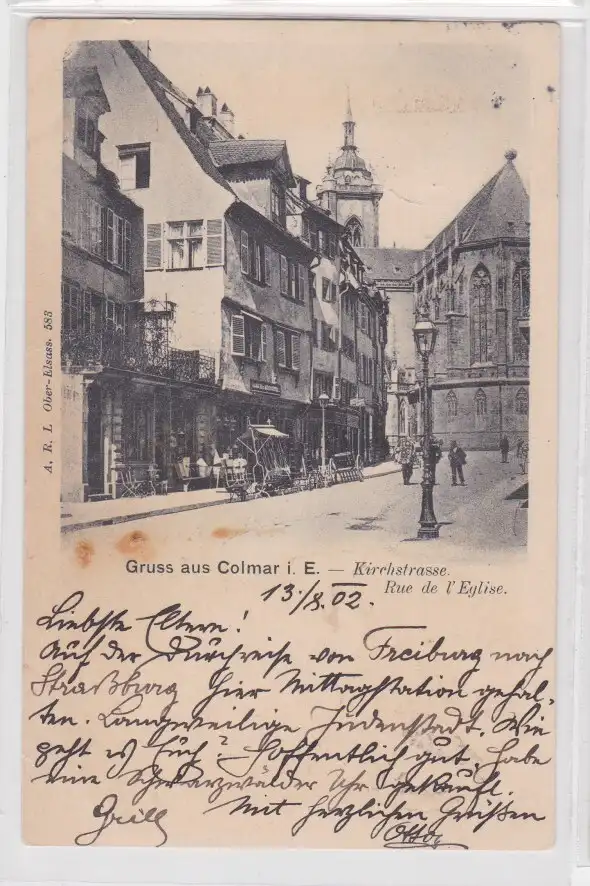 A. R. L. Ober-Elsass. 583
Gruss aus Colmar i. E. — Kirchstrasse.
Rue de l'Eglise.
13./8. 02.
Liebste Eltern!
Auf der Durchreise von Freiburg nach
Straßburg hier Mittagstation gehal-
ten. Langweilige Judenstadt. Wie
geht es Euch? – Hoffentlich gut. Habe
eine Schwarzwälder Uhr gekauft.
Mit herzlichen Grüßen
Otto.